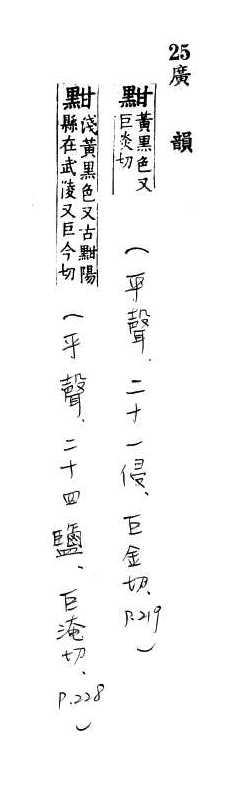 25廣韻
黚黃黑色又巨炎切
(平聲、二十一侵、巨金切、P.219)
黚淺黃黑色又古黚陽縣在武陵又巨今切
(平聲、二十四鹽、巨淹切、P.228)